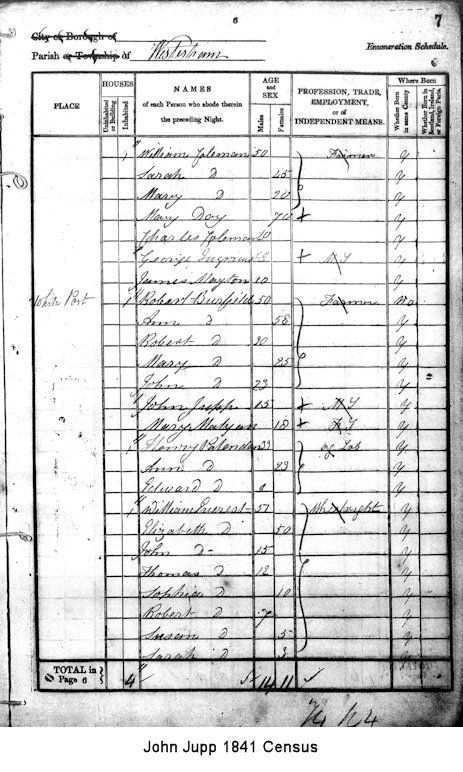 6
7
City or Borough of
Parish or Township of Westerham
Enumeration Schedule.
PLACE
HOUSES
Uninhabited or Building
Inhabited
NAMES
of each Person who abode therein
the preceding Night.
AGE
and
SEX
Males
Females
PROFESSION, TRADE,
EMPLOYMENT,
or of
INDEPENDENT MEANS.
Where Born
Whether Born in same County
Whether Born in Scotland, Ireland, or Foreign Parts.
1 William Coleman 50 Farmer Y
Sarah D 45 Y
Mary D 20 Y
Mary Day 70 Y
Charles Coleman 10 Y
George M.S Y
James 10 Y
White Post 1 Robert Burfield 50 Farmer No
Ann D 58 Y
Robert D 30 Y
Mary D 25 Y
John D 23 Y
John Jupp 15 M.S Y
Mary 18 F.S Y
1 Henry Ag Lab Y
Ann D 23 Y
Edward D Y
1 William Everest 51 Wheelwright Y
Elizabeth D 50 Y
John D 15 Y
Thomas D 12 Y
Sophia D 10 Y
Robert D 7 Y
Susan D 5 Y
Sarah D 3 Y
TOTAL in
Page 6
4 14 11
John Jupp 1841 Census